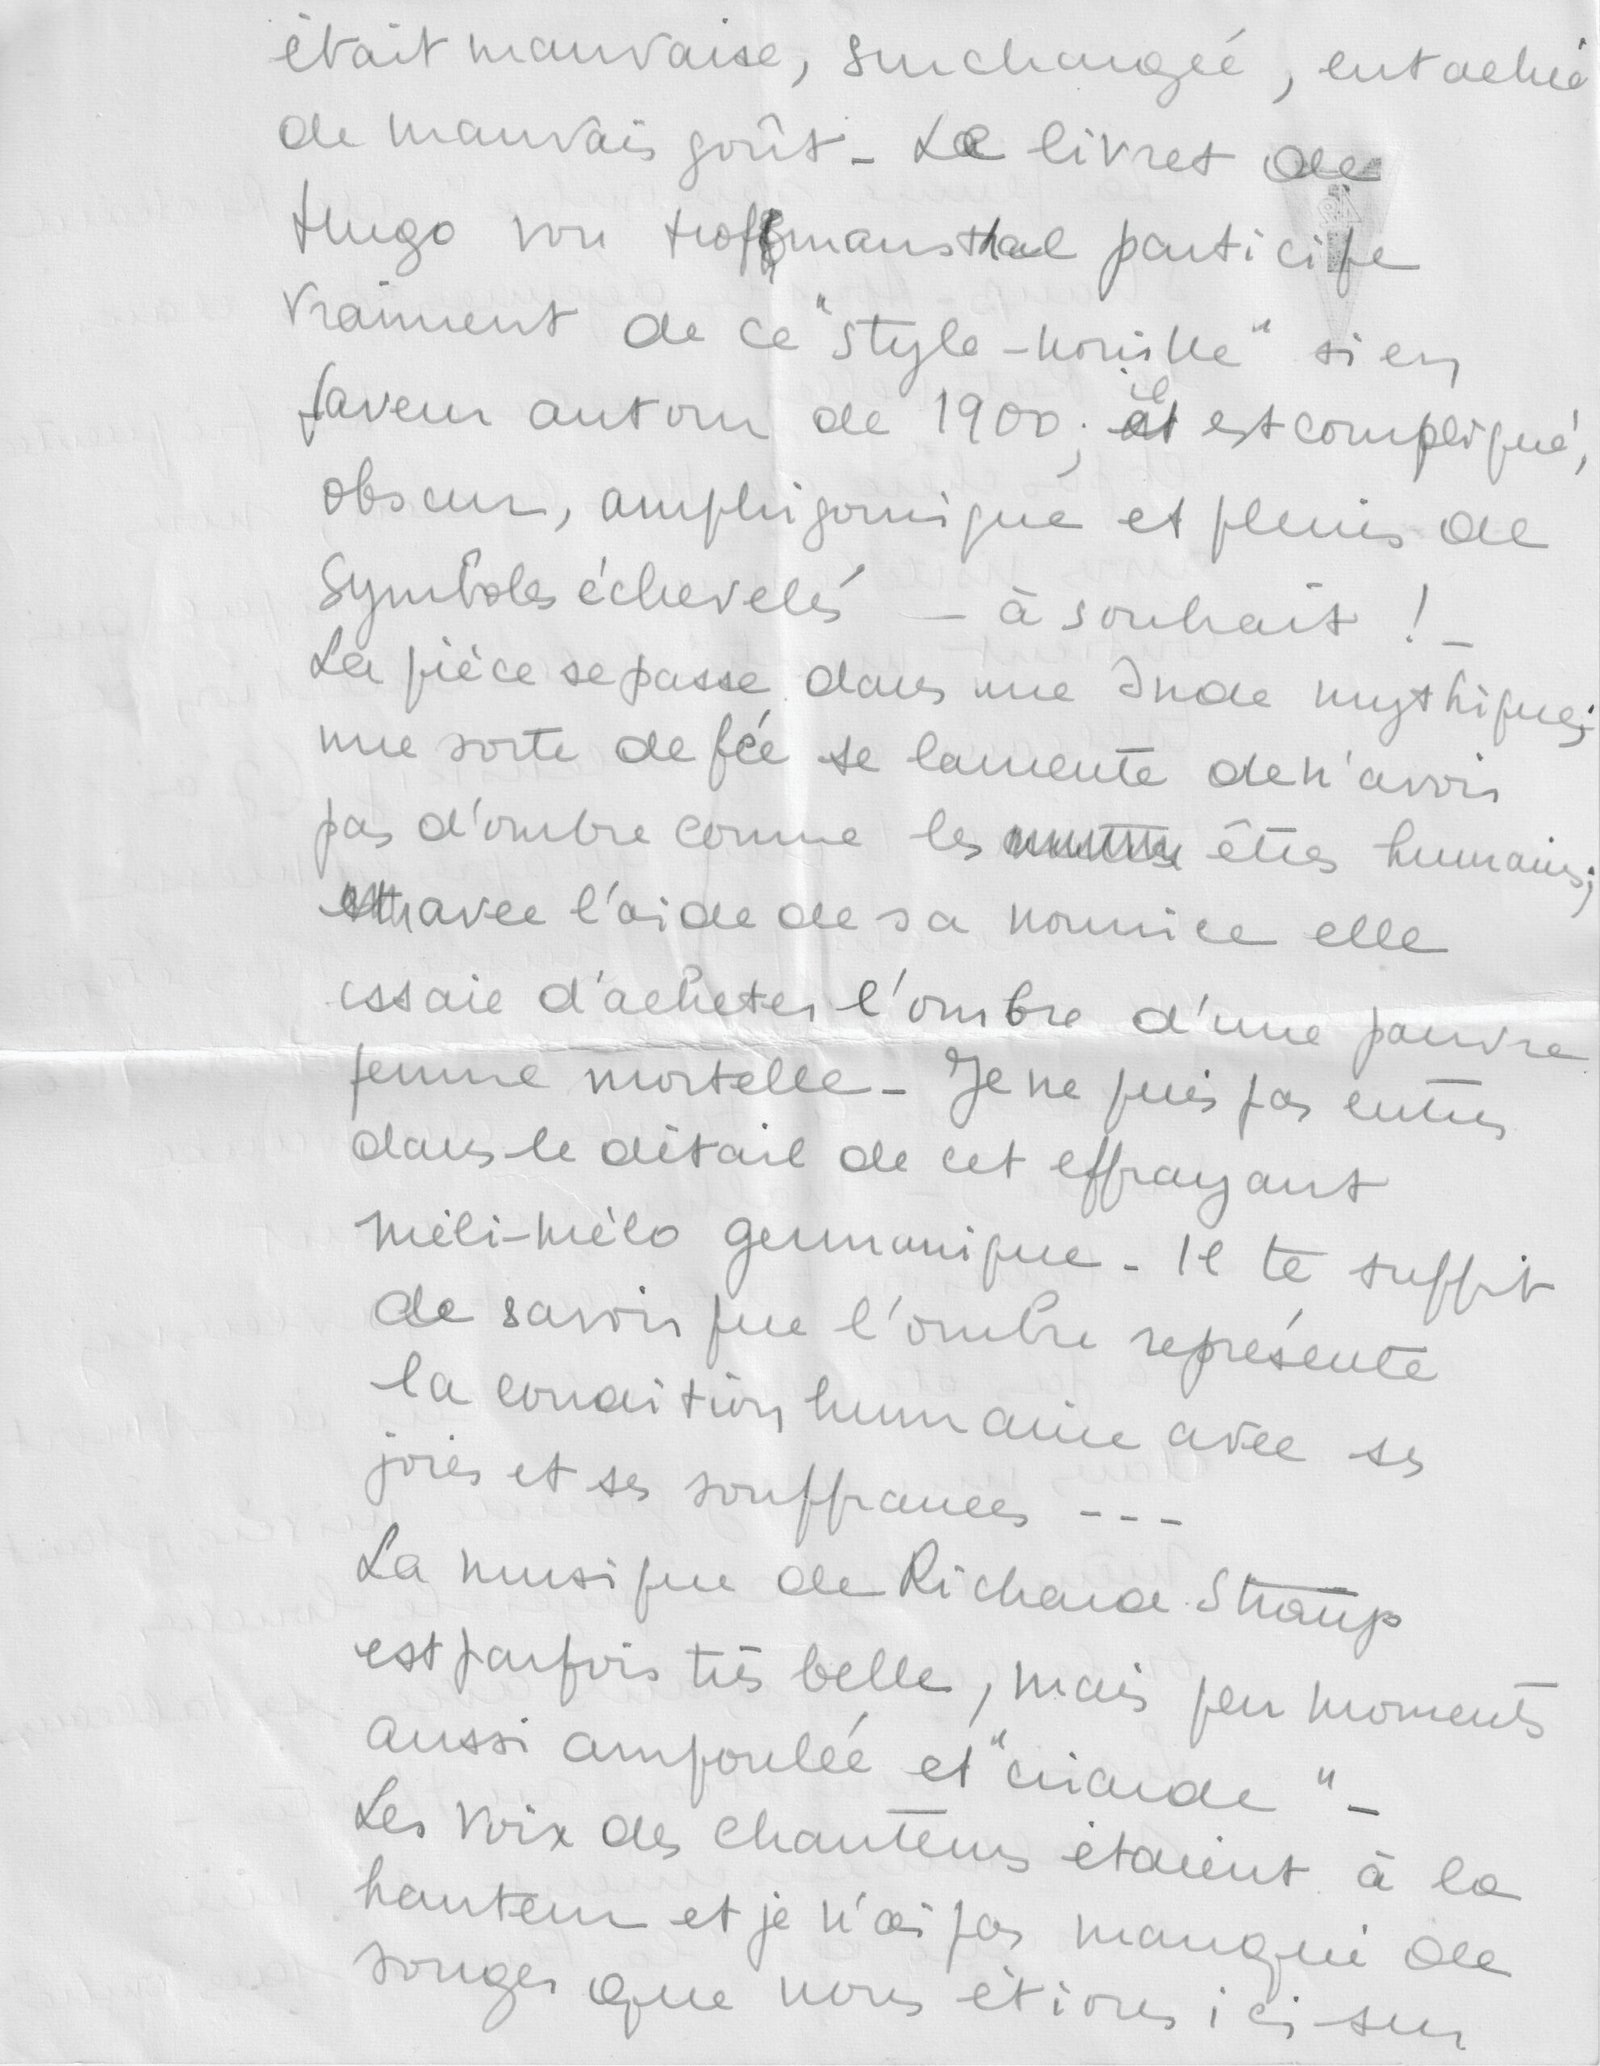 était mauvaise, surchargée, entachée
de mauvais goût - Le livret de
Hugo von Hoffmansthal participe
vraiment de ce "style-nouille" si en
faveur autour de 1900; il est compliqué,
obscur, amphigourique et pleins de
Symboles échevelés - à souhait ! -
La pièce se passe dans une Inde mythique;
une sorte de fée se lamente de n'avoir
pas d'ombre comme les êtres humains;
avec l'aide de sa nourrice elle
essaie d'acheter l'ombre d'une pauvre
femme mortelle - Je ne puis pas entrer
dans le détail de cet effrayant
méli-mélo germanique - Il te suffit
de savoir que l'ombre représente
la condition humaine avec ses
joies et ses souffrances ---
La musique de Richard Strauß
est parfois très belle, mais par moments
aussi ampoulée et "criarde" -
Les voix des chanteurs étaient à la
hauteur et je n'ai pas manqué de
songer que nous étions ici sur